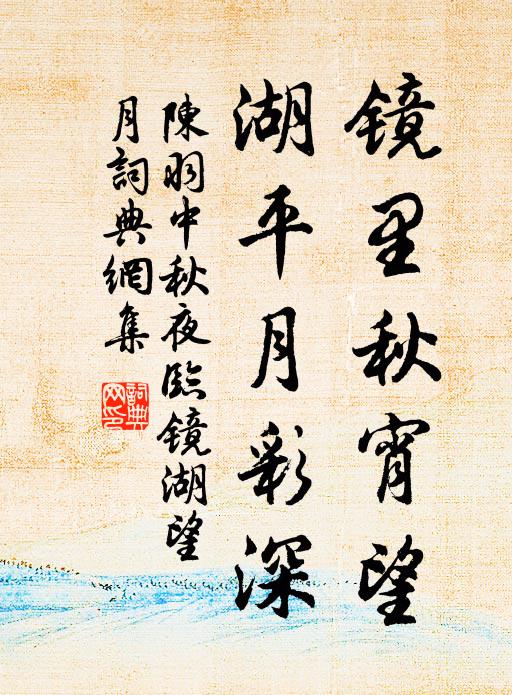 镜里秋宵望
湖平月彩深
陳羽中秋夜臨镜湖望
月詞典網集
詞典
网印